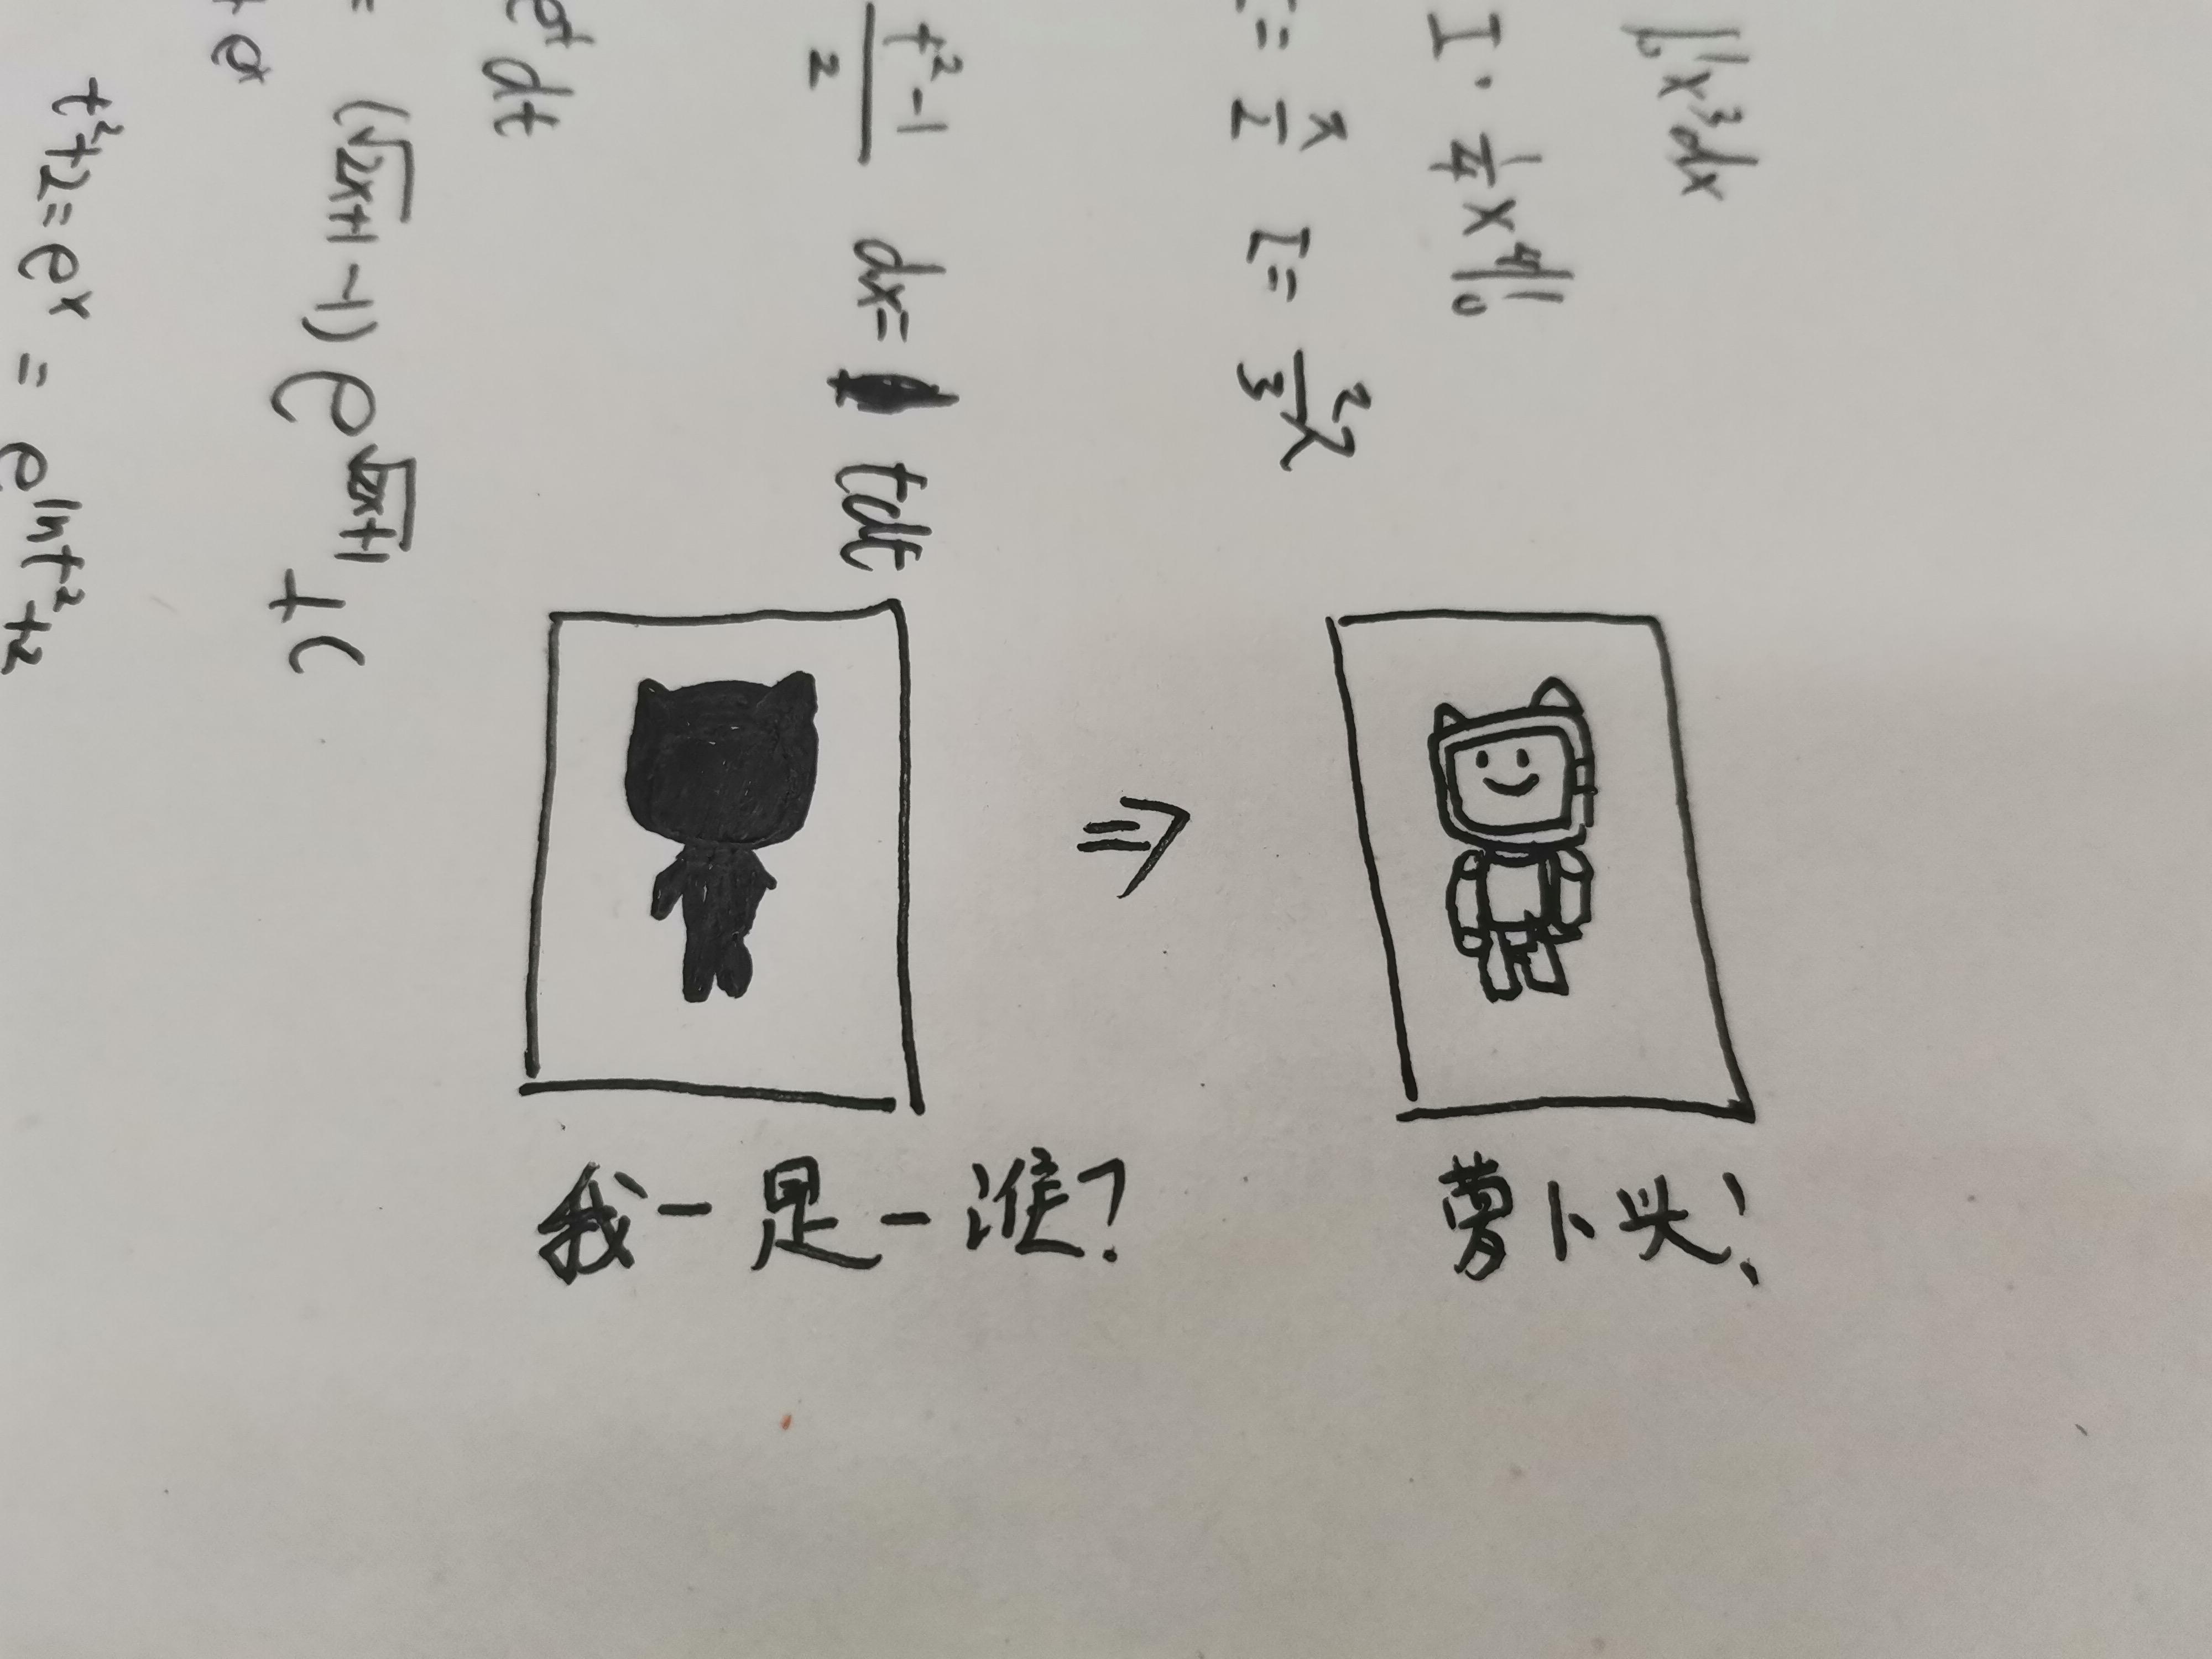 ∫₀¹x³dx
I·¼x⁴|₀¹
π/2 I=2/3π
t²-1/2 dx= tdt
e^t dt
(√2x+1-1)e^√2x+1+C
t²+2=e^x = e^lnt²+2
我-是-谁?
萝卜头!